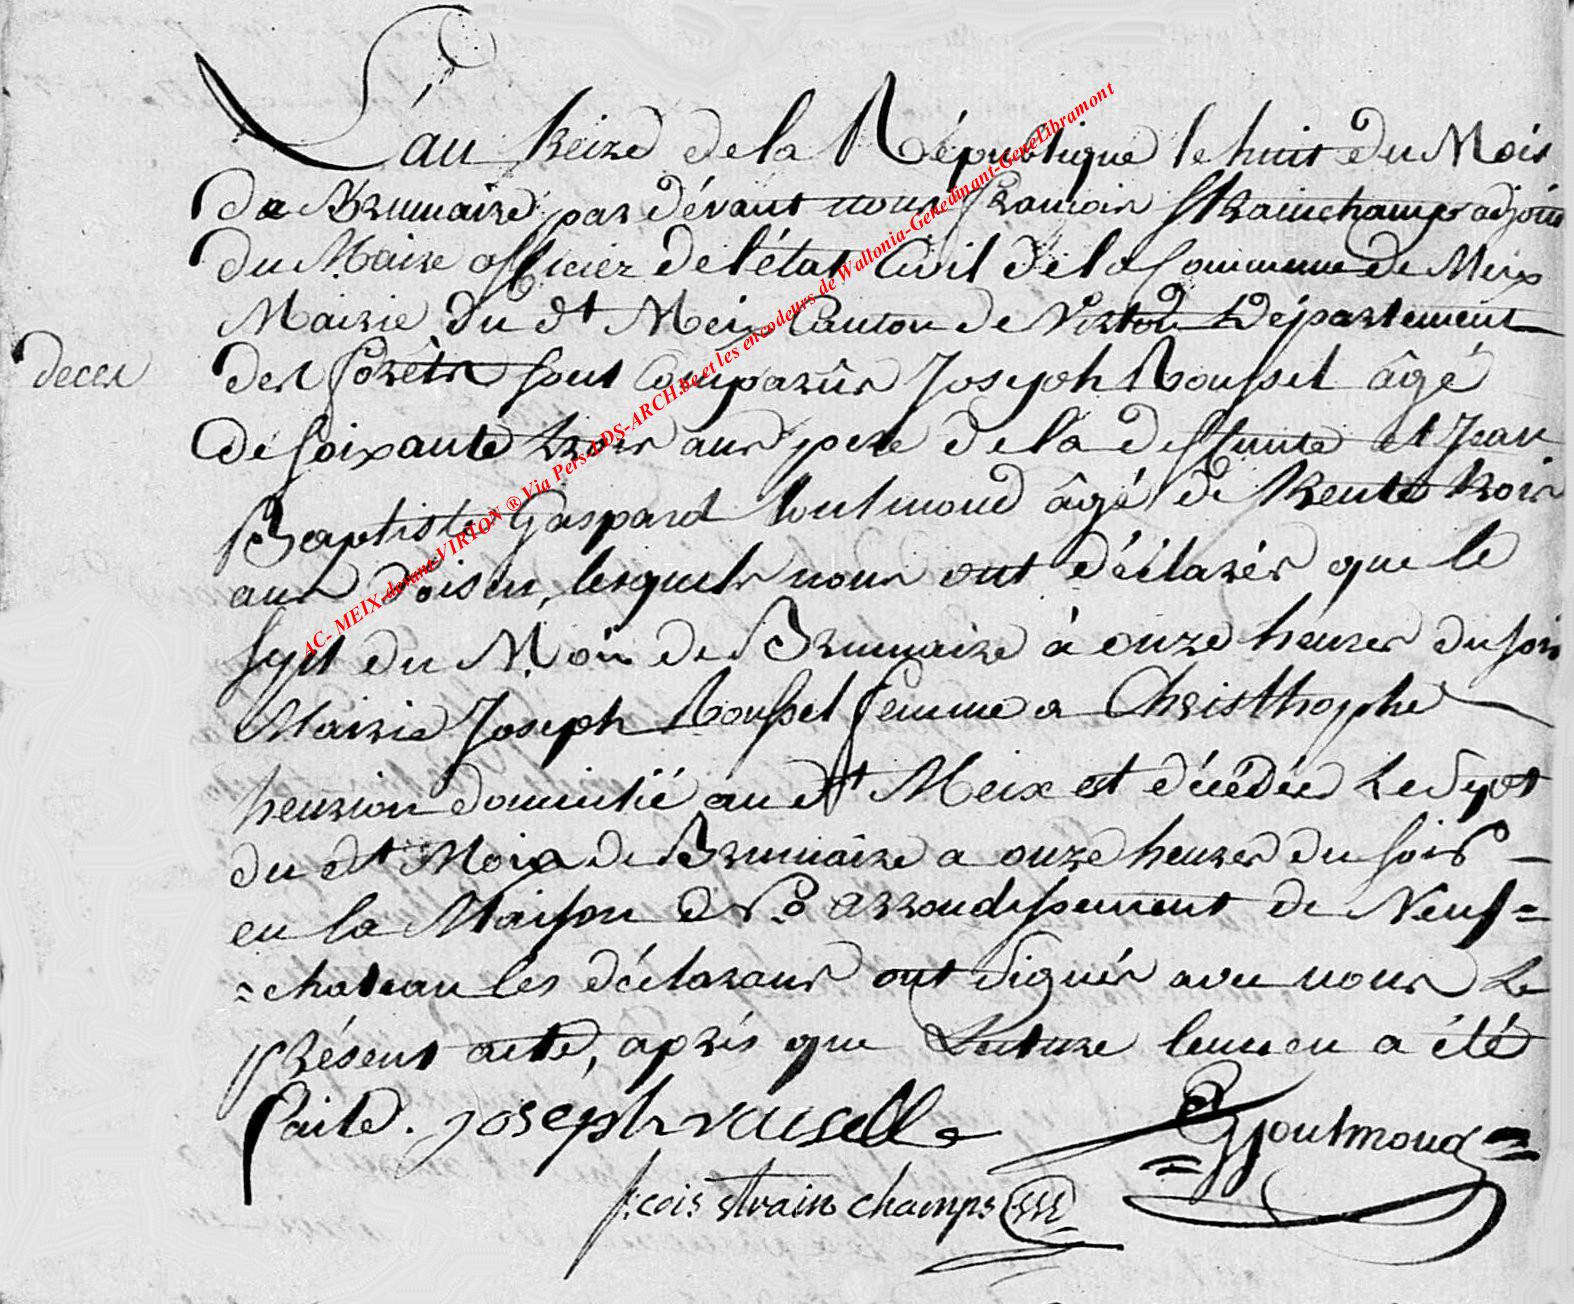 L'an treize de la République le huit du Mois
de Brumaire par dévant nous François Strainchamps adjoint
du Maire officier de l'état Civil de la Commune de Meix
Mairie du dt Meix Canton de Virton Département
decès
des forêts sont Comparûs Joseph Roussel âgé
de soixante trois ans pere de la deffunte et Jean
Baptiste Gaspard toutmond âgé de trente trois
ans voisin, lesquels nous ont déclarés que le
sept du Mois de Brumaire à onze heures du soir
Marie Joseph Roussel femme a Christthophe
henrion domicilié au dt Meix est décédée le sept
du dt Mois de Brumaire a onze heures du soir
en la Maison arrondissement de Neuf=
=chateau les déclarans ont signés avec nous le
présent acte, aprés que Lecture leur en a été
faite. Joseph rousselle
Gjoutmoud
f:cois strainchamps
AC- MEIX-devant-VIRTON ® Via Pers-LDS-ARCH.be et les encodeurs de Wallonia-Genedinant-GeneLibramont